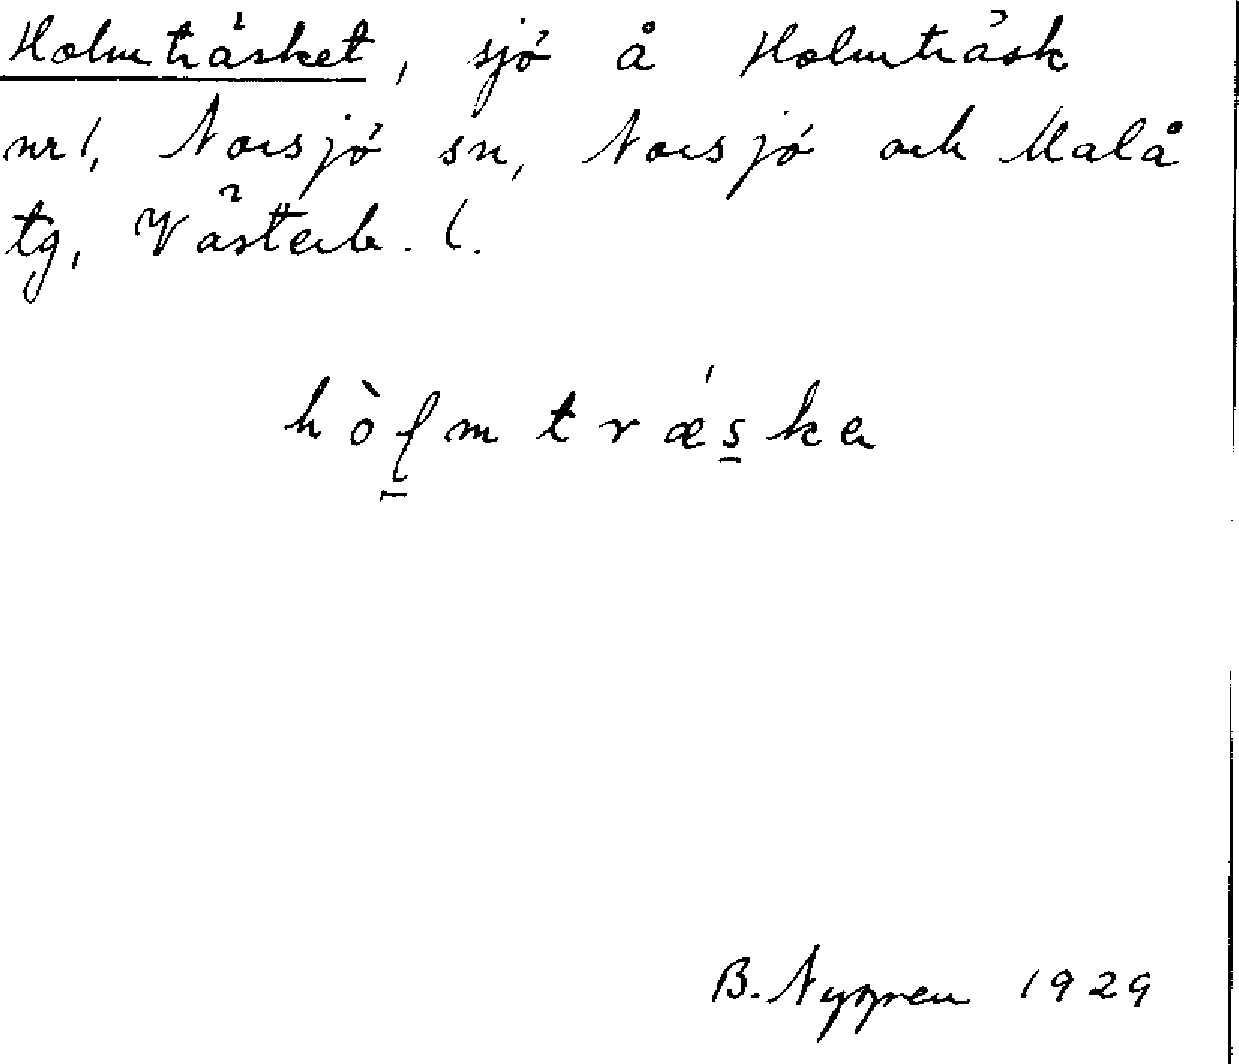 Holmträsket, sjö å Holmträsk
nr 1, Norsjö sn, Norsjö och Malå
tg, Västerb. l.
hòlmtrǽske
B. Nygren 1929